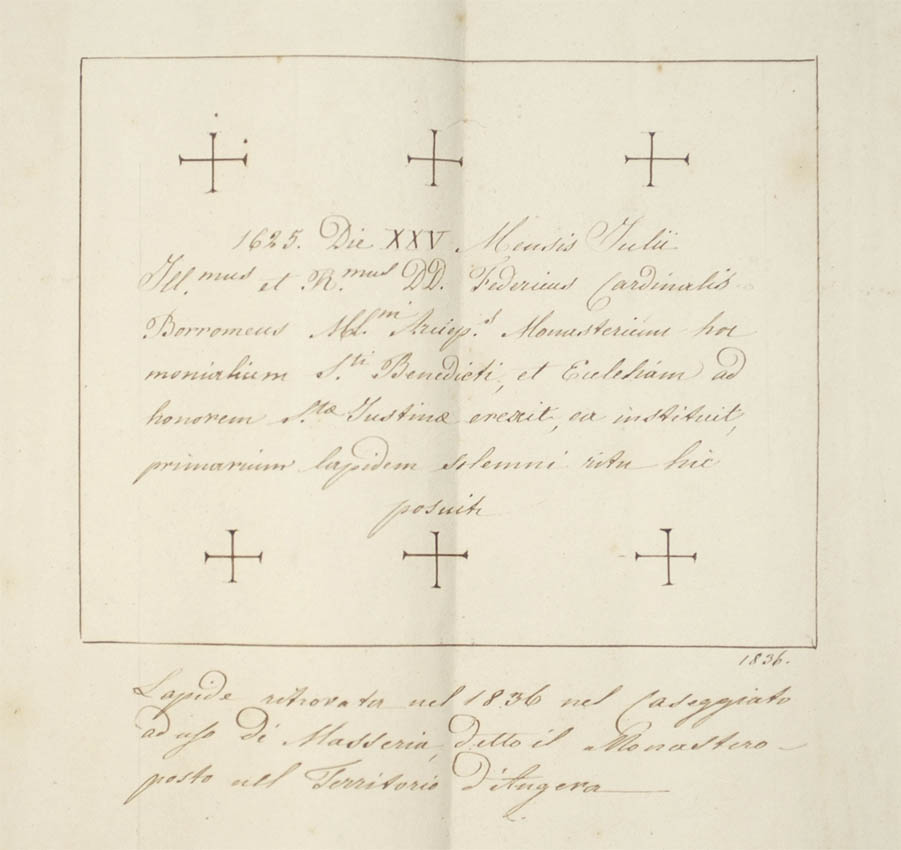 1625. Die XXV Mensis Julii
Ill.mus et R.mus DD. Federicus Cardinalis
Borromeus Ml.m Arciep.s Monasterium hoc
monialium S.ti Benedicti, et Ecclesiam ad
honorem S.tæ Justinæ erexit, ea instituit,
primarium lapidem solemni ritu hic
posuit
1836.
Lapide ritrovata nel 1836 nel Caseggiato
ad uso di Masseria, detto il Monastero
posto nel Territorio d'Angera